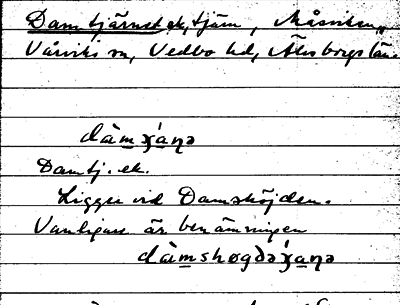 Damtjärnet, ek, tjärn, Måsviken,
Vårviks sn, Vedbo hd, Älvsborgs län.
dàmɟ́anə
Damtj. ek.
Ligger vid Damshöjden.
Vanligare är benämningen
dàmshøgdəɟ́anə